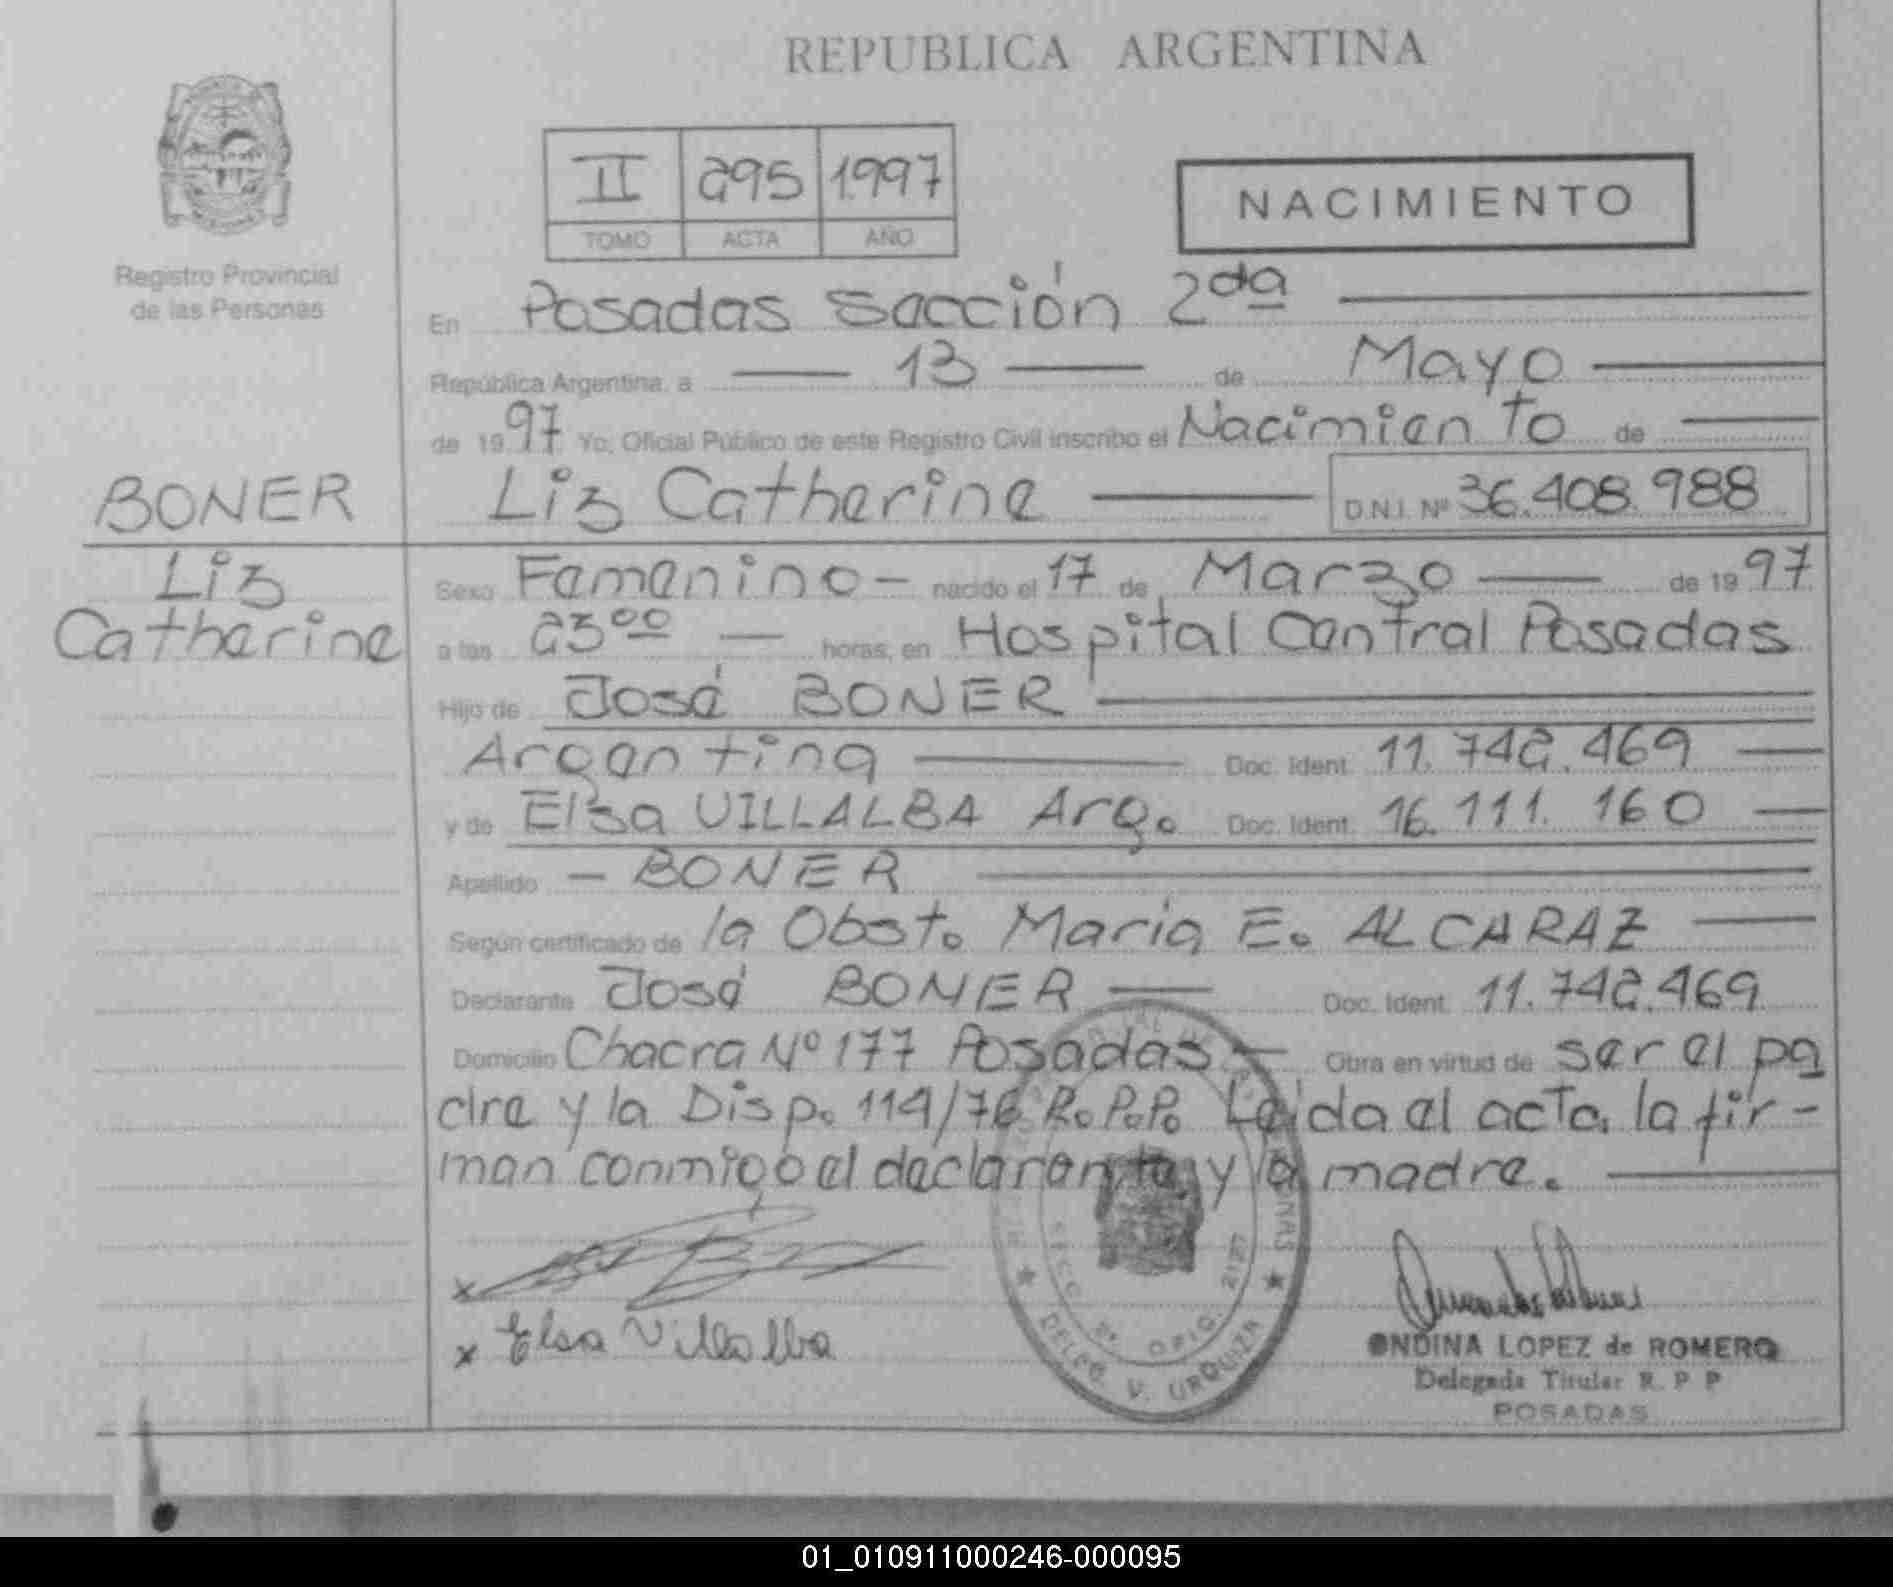 REPUBLICA ARGENTINA
Registro Provincial
de las Personas
II 295 1.997
TOMO ACTA AÑO
NACIMIENTO
En Posadas Sección 2da
República Argentina, a 13 de Mayo
de 1997 Yo, Oficial Público de este Registro Civil inscribo el Nacimiento de
BONER
Liz
Catherine
Liz Catherine D.N.I. Nº 36.408.988
Sexo Femenino - nacido el 17 de Marzo de 1997
a las 23oo horas, en Hospital Central Posadas
Hijo de José BONER
Argentina Doc. Ident. 11.742.469
y de Elsa VILLALBA Arg. Doc. Ident. 16.111.160
Apellido - BONER
Según certificado de la Obst. Maria E. ALCARAZ
Declarante José BONER Doc. Ident. 11.742.469
Domicilio Chacra Nº 177 Posadas - Obra en virtud de ser el pa
dre y la Disp. 114/76 R.P.P. Leida el acta, la fir-
man conmigo el declarante y la madre.
x
x Elsa Villalba
SECC. 2ª OFIC. 2127
DELEG. V. URQUIZA
ONDINA LOPEZ de ROMERO
Delegada Titular R. P P
POSADAS
01_010911000246-000095